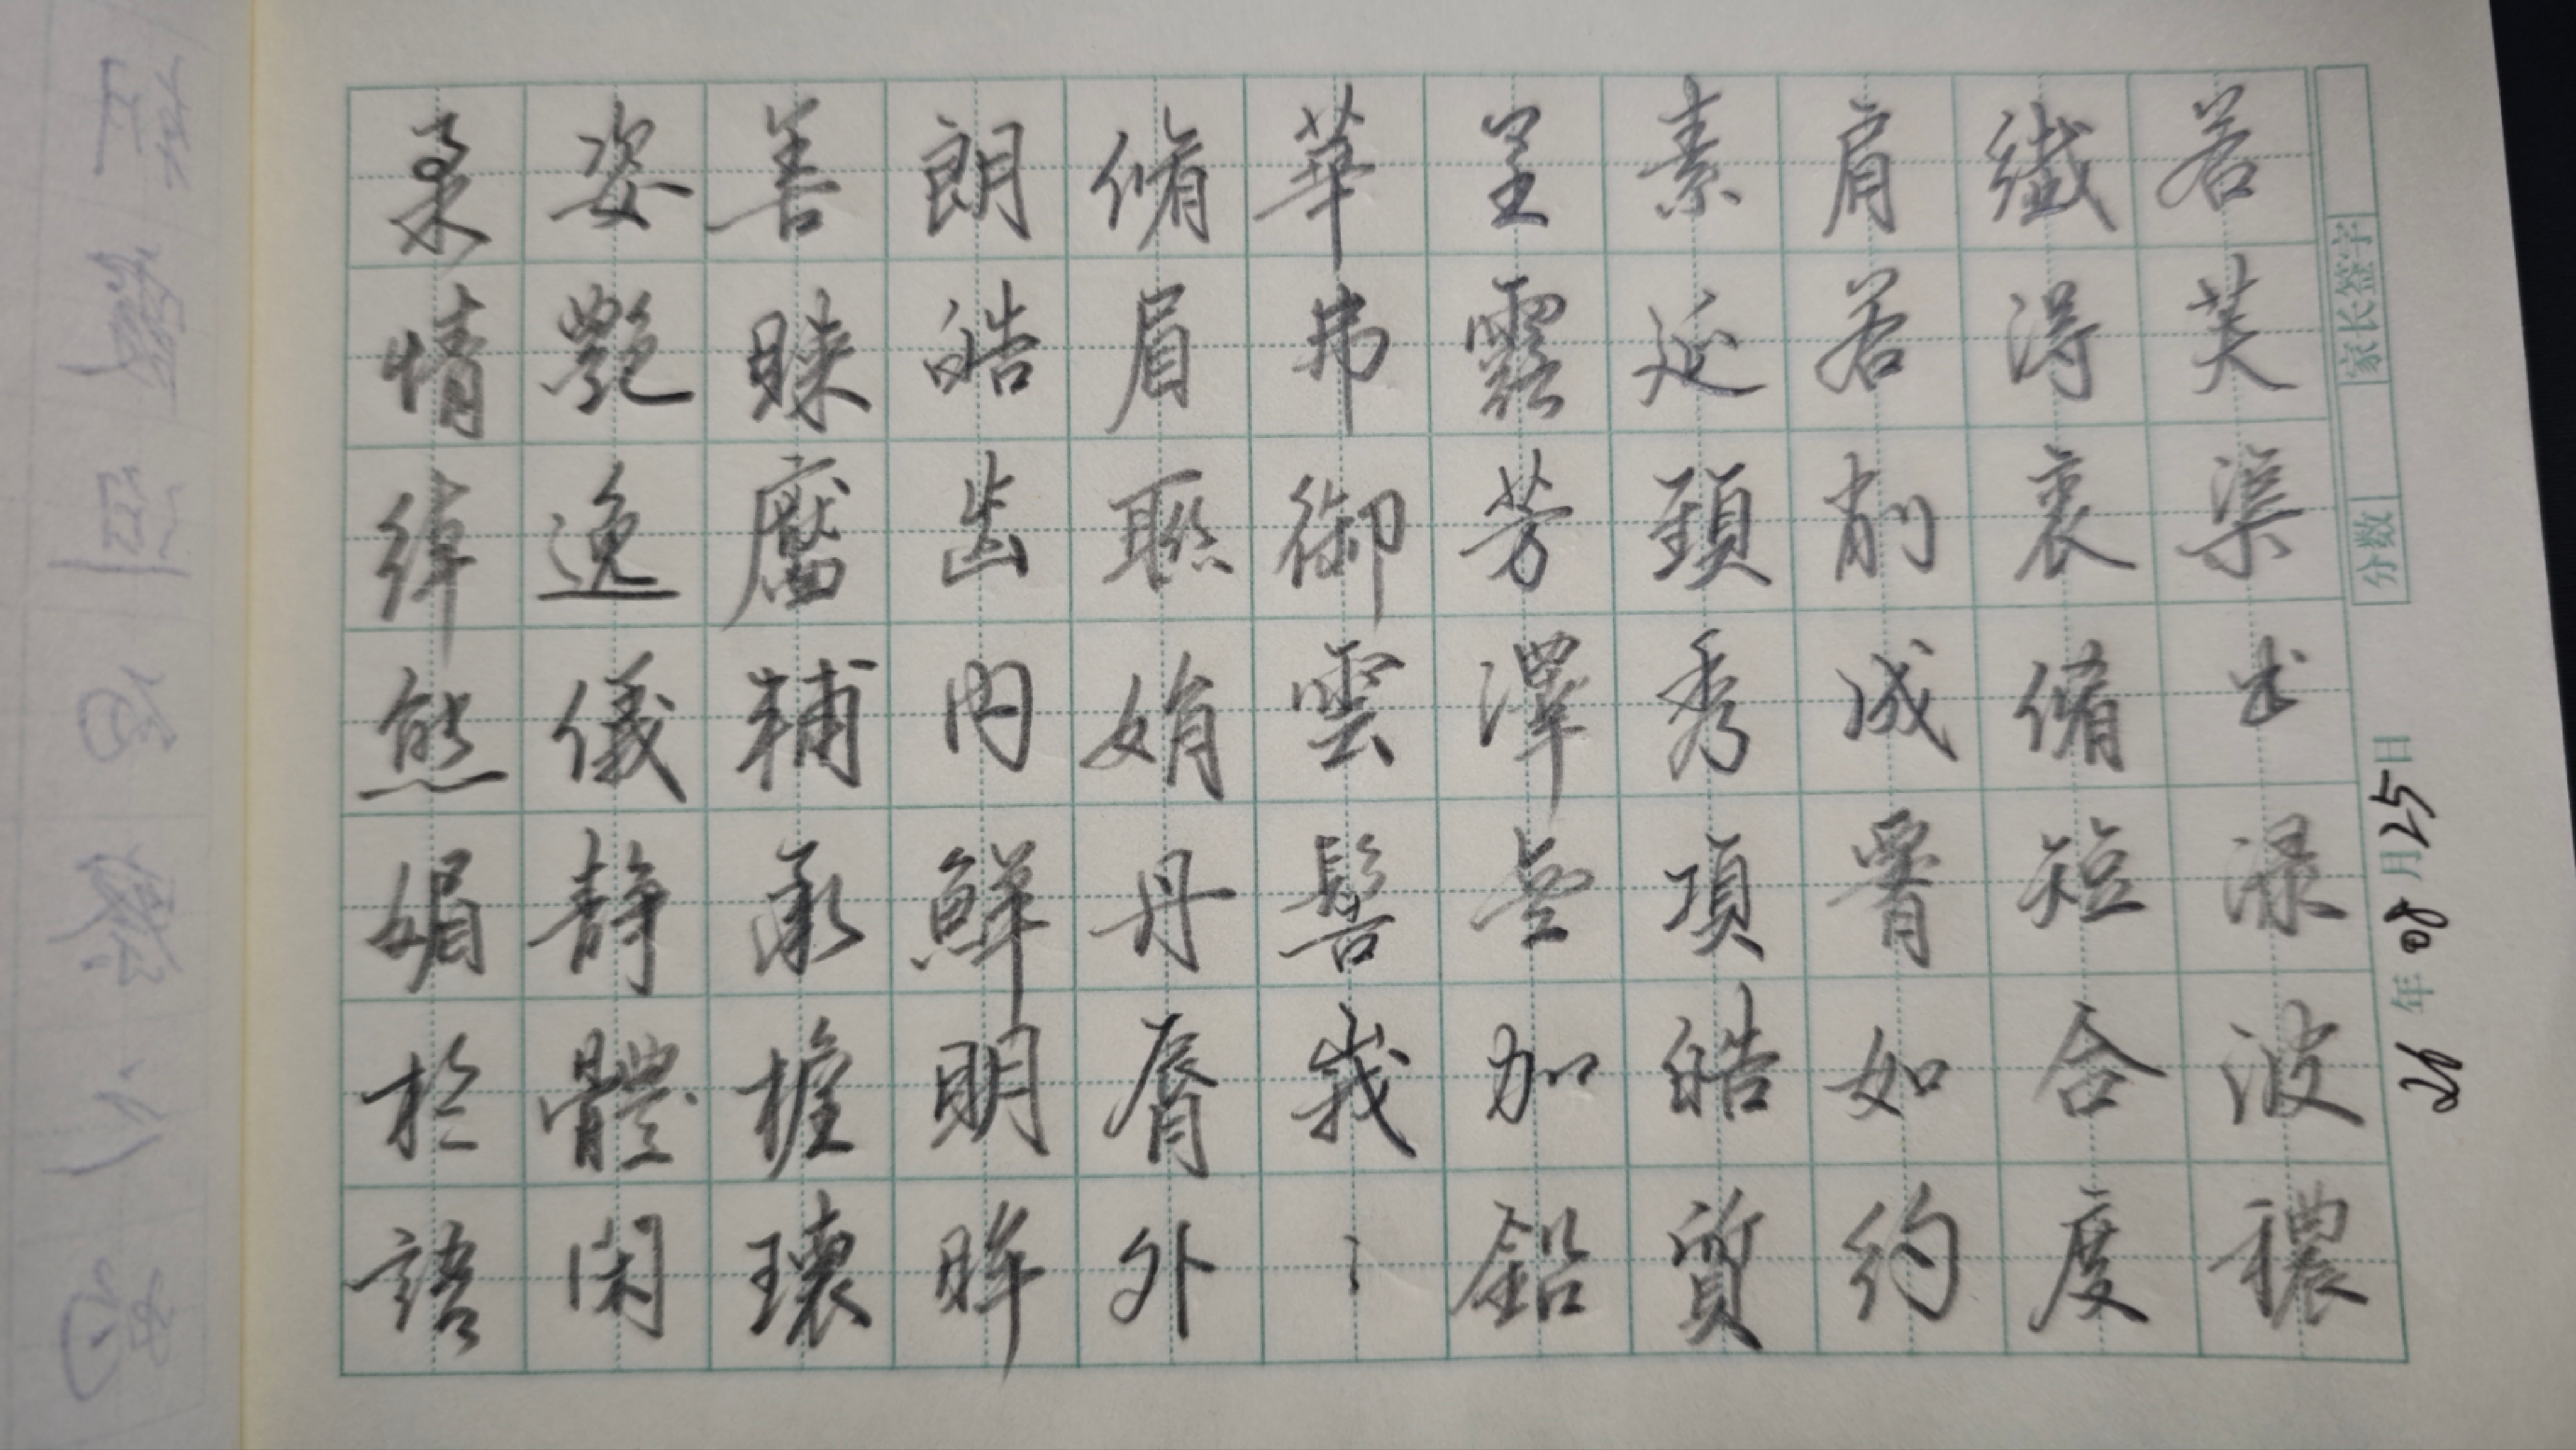 若芙渠出渌波穠
纖得衷脩短合度
肩若削成腰如約
素延頸秀項皓質
呈露芳澤無加鉛
華弗御雲髻峩〻
脩眉聯娟丹脣外
朗皓齒内鮮明眸
善睞靨輔承權瓌
姿艷逸儀静體閑
柔情綽態媚於語
家长签字
分数
26年08月25日